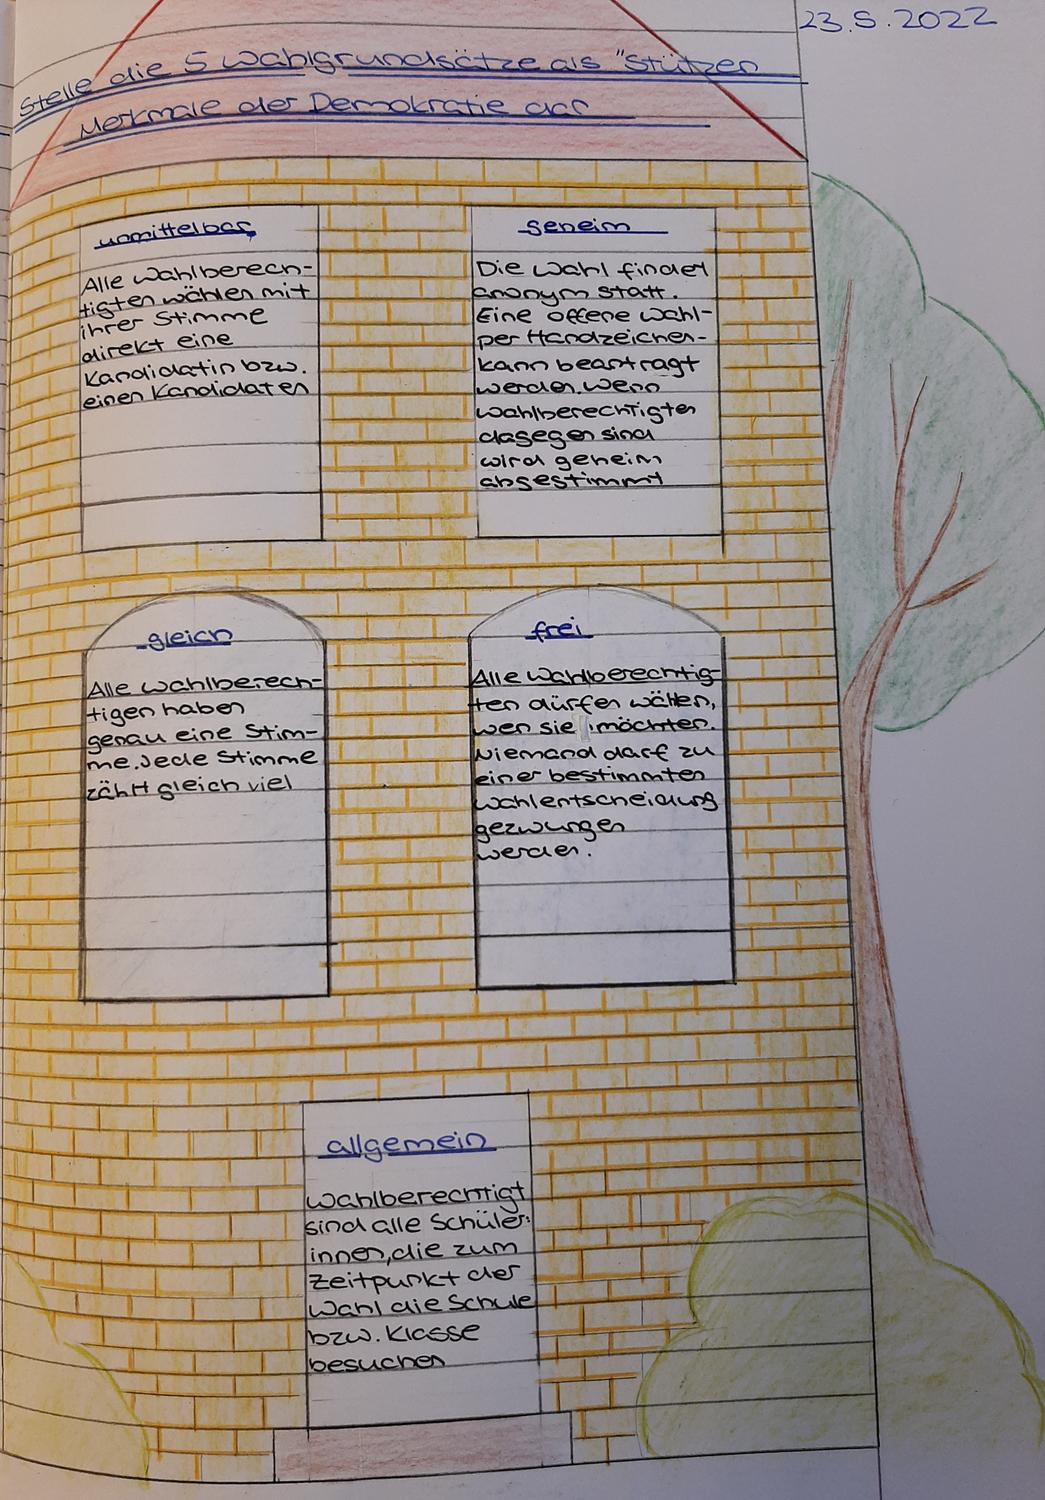 23.5.2022
Stelle die 5 Wahlgrundsätze als "Stützen
Merkmale der Demokratie dar
unmittelbar
Alle Wahlberech-
tigten wählen mit
ihrer Stimme
direkt eine
Kandidatin bzw.
einen Kandidaten
geheim
Die Wahl findet
anonym statt.
Eine offene Wahl-
per Handzeichen-
kann beantragt
werden. Wenn
wahlberechtigten
dagegen sind
wird geheim
abgestimmt
gleich
Alle Wahlberech-
tigen haben
genau eine Stim-
me. Jede Stimme
zählt gleich viel
frei
Alle Wahlberechtig-
ten dürfen wählen,
wen sie möchten.
Niemand darf zu
einer bestimmten
Wahlentscheidung
gezwungen
werden.
allgemein
Wahlberechtigt
sind alle Schüler:
innen, die zum
Zeitpunkt der
Wahl die Schule
bzw. Klasse
besuchen